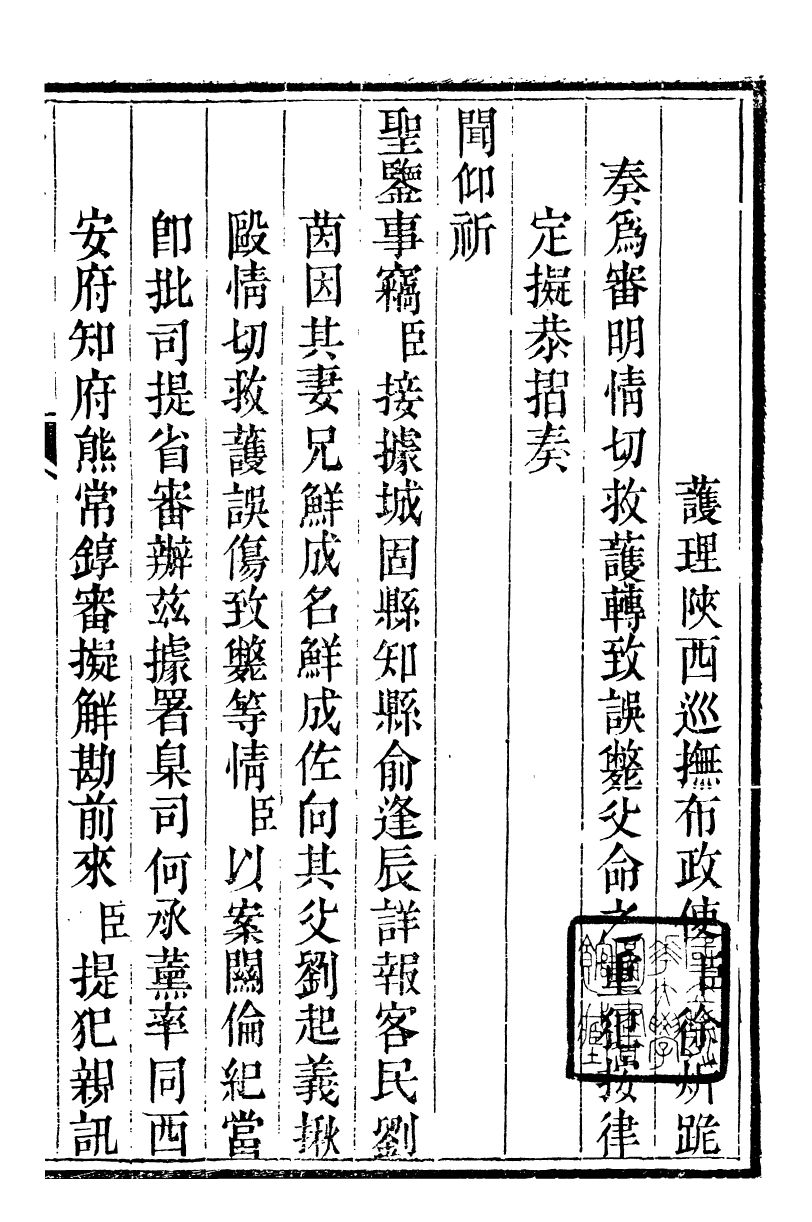 護理陝西巡撫布政使臣徐炘跪
奏爲審明情切救護轉致誤斃父命之重犯按律
定擬恭摺奏
聞仰祈
聖鑒事竊臣接據城固縣知縣俞逢辰詳報客民劉
茵因其妻兄鮮成名鮮成佐向其父劉起義揪
毆情切救護誤傷致斃等情臣以案關倫紀當
卽批司提省審辦兹據署臬司何承薰率同西
安府知府熊常錞審擬解勘前來臣提犯親訊